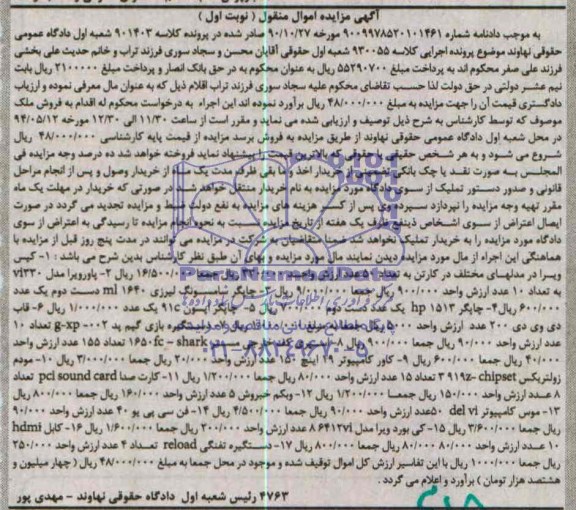 آگهی مزایده اموال منقول ( نوبت اول )
به موجب دادنامه شماره ۹۰۰۹۹۷۸۵۲۰۱۰۱۴۶۱ مورخه ۹۰/۱۰/۲۷ صادر شده در پرونده کلاسه ۹۰۱۴۰۳ شعبه اول دادگاه عمومی
حقوقی نهاوند موضوع پرونده اجرایی کلاسه ۹۳۰۰۵۵ شعبه اول حقوقی آقایان محسن و سجاد سوری فرزند تراب و خانم حدیث علی بخشی
فرزند علی صفر محکوم اند به پرداخت مبلغ ۵۵۲۹۰۷۰۰ ریال به عنوان محکوم به در حق بانک انصار و پرداخت مبلغ ۲۱۰۰۰۰۰ ریال بابت
نیم عشر دولتی در حق دولت لذا حسب تقاضای محکوم علیه سجاد سوری فرزند تراب اقلام ذیل که به عنوان مال معرفی نموده و ارزیاب
دادگستری قیمت آن را جهت مزایده به مبلغ ۴۸/۰۰۰/۰۰۰ ریال برآورد نموده اند این اجراء به درخواست محکوم له اقدام به فروش ملک
موصوف که توسط کارشناس به شرح ذیل توصیف و ارزیابی شده می نماید و مقرر است از ساعت ۱۱/۳۰ الی ۱۲/۳۰ مورخه ۹۴/۰۵/۱۲
در محل شعبه اول دادگاه عمومی حقوقی نهاوند از طریق مزایده به فروش برسد مزایده از قیمت پایه کارشناسی ۴۸/۰۰۰/۰۰۰ ریال
شروع می شود و به هر شخص حقیقی یا حقوقی که بالاترین قیمت را پیشنهاد نماید فروخته خواهد شد ده درصد وجه مزایده فی
المجلس به صورت نقد یا چک بانکی تضمینی از خریدار اخذ و ما بقی ظرف مدت یک ماه از خریدار وصول و پس از انجام مراحل
قانونی و صدور دستور تملیک از سوی دادگاه مورد مزایده به نام خریدار منتقل خواهد شد در صورتی که خریدار در مهلت یک ماه
مقرر تهیه وجه مزایده را نپردازد سپرده وی پس از کسر هزینه های مزایده به نفع دولت ضبط و مزایده تجدید می گردد در صورت
ایصال اعتراض از سوی اشخاص ذینفع ظرف یک هفته از تاریخ مزایده نسبت به نحوه انجام مزایده تا رسیدگی به اعتراض از سوی
دادگاه مورد مزایده را به خریدار تملیک نخواهد شد ضمنا متقاضیان به شرکت در مزایده می توانند در مدت پنج روز قبل از مزایده با
هماهنگی این اجراء از مال مورد مزایده دیدن نمایند مال مورد مزایده و بهای آن طبق نظر کارشناس بدین شرح می باشد : ۱- کیس
ویرا در مدلهای مختلف در کارتن به تعداد ارزش واحد ریال جمعا ۱۶/۵۰۰/۰۰۰ ریال ۲- پاوروبرا مدل vi330
به تعداد ۱۰ عدد ارزش واحد ۹۰۰/۰۰۰ ریال جمعا ۹/۰۰۰/۰۰۰ ریال ۳- چاپگر سامسونگ لیزری ml ۱۶۴۰ دست دوم یک عدد
۶۰۰/۰۰۰ ریال ۴- چاپگر hp ۱۵۱۳ یک عدد دست دوم ریال ۵- چاپگر اپسون c۹۱ یک عدد ۱/۰۰۰/۰۰۰ ریال ۶- قاب
دی وی دی ۲۰۰ عدد ارزش واحد ریال جمعا بازی گیم پد g-xp -۰۰۲ تعداد ۱۰
عدد ارزش واحد ۹۰/۰۰۰ ریال جمعا ۹۰۰/۰۰۰ ریال ۸- ۱۶۵۰fc - shark تعداد ۱۵۵ عدد ارزش واحد
۴۰/۰۰۰ ریال جمعا ۶۰۰/۰۰۰ ریال ۹- کاور کامپیوتر ۲۹ اینچ ۱۵۰ عدد ارزش واحد ۲۰/۰۰۰ ریال جمعا ۳/۰۰۰/۰۰۰ ریال ۱۰- مودم
زولتریکس ۹۱۹z- chipset ۳ تعداد ۱۵ عدد ارزش واحد ۸۰/۰۰۰ ریال جمعا ۱/۲۰۰/۰۰۰ ریال ۱۱- کارت صدا pci sound card تعداد
۸ عدد ارزش واحد ۱۵۰/۰۰۰ ریال جمعا ۱/۲۰۰/۰۰۰ ریال ۱۲- وبکم خبروش ۵ عدد ارزش واحد ۱۶۰/۰۰۰ ریال جمعا ۸۰۰/۰۰۰ ریال
۱۳- موس کامپیوتر del vi ۵۰عدد ارزش واحد ۹۰/۰۰۰ ریال جمعا ۴/۵۰۰/۰۰۰ ریال ۱۴- فن سی پی یو ۴۰ عدد ارزش واحد ۹۰/۰۰۰
ریال جمعا ۳/۶۰۰/۰۰۰ ریال ۱۵- کی بورد ویرا مدل ۶۴۱۲vi ۸ عدد ارزش واحد ۲۰۰/۰۰۰ ریال جمعا ۱/۶۰۰/۰۰۰ ریال ۱۶- کابل hdmi
۱۰ عدد ارزش واحد ۸۰/۰۰۰ ریال جمعا ۸۰۰/۰۰۰ ریال ۱۷- دستگیره تفنگی reload تعداد ۴ عدد ارزش واحد ۲۵۰/۰۰۰
ریال جمعا ۱/۰۰۰/۰۰۰ ریال با این تفاسیر ارزش کل اموال توقیف شده و موجود در محل جمعا به مبلغ ۴۸/۰۰۰/۰۰۰ ریال ( چهار میلیون و
هشتصد هزار تومان ) برآورد و اعلام می گردد .
۴۷۶۳ رئیس شعبه اول دادگاه حقوقی نهاوند - مهدی پور
ParsNamadData
۰۲۱-۸۸۳۴۹۶۷۰-۵